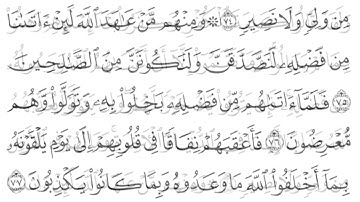 مِن وَلِيٍّ وَلَا نَصِيرٍ ﴿٧٤﴾ ۞ وَمِنْهُم مَّنْ عَٰهَدَ ٱللَّهَ لَئِنْ ءَاتَىٰنَا
مِن فَضْلِهِۦ لَنَصَّدَّقَنَّ وَلَنَكُونَنَّ مِنَ ٱلصَّٰلِحِينَ
﴿٧٥﴾ فَلَمَّآ ءَاتَىٰهُم مِّن فَضْلِهِۦ بَخِلُوا۟ بِهِۦ وَتَوَلَّوا۟ وَّهُم
مُّعْرِضُونَ ﴿٧٦﴾ فَأَعْقَبَهُمْ نِفَاقًا فِى قُلُوبِهِمْ إِلَىٰ يَوْمِ يَلْقَوْنَهُۥ
بِمَآ أَخْلَفُوا۟ ٱللَّهَ مَا وَعَدُوهُ وَبِمَا كَانُوا۟ يَكْذِبُونَ ﴿٧٧﴾